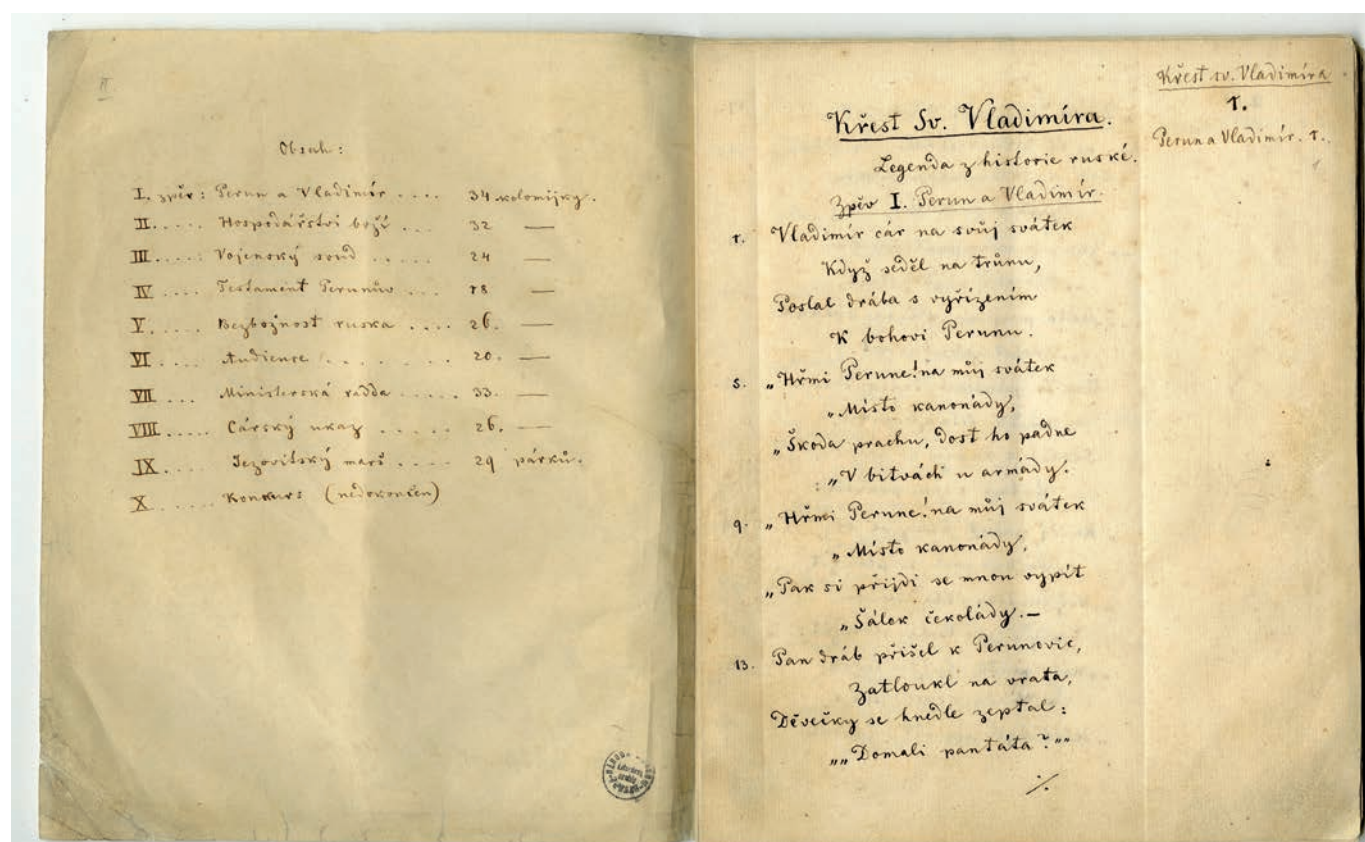 II
Obsah:
I. zpěv: Perun a Vladimír .... 34 kolomijky.
II. .... Hospodářství boží ... 32 —
III. ....: Vojenský soud ..... 24 —
IV .... Testament Perunův .... 18 —
V. .... Bezbožnost ruska .... 26. —
VI .... Audience ....... 20. —
VII .... Ministerská radda ..... 33. —
VIII ..... Cárský ukaz ..... 26. —
IX .... Jezovitský marš .... 29 párků.
X ..... Konkurs (nedokončen)
Křest sv. Vladimíra
1.
Perun a Vladimír. 1.
Křest Sv. Vladimíra.
Legenda z historie ruské.
Zpěv I. Perun a Vladimír.
1. Vladimír cár na svůj svátek
Když seděl na trůnu,
Poslal drába s vyřízením
K bohovi Perunu.
5. „Hřmi Perune! na můj svátek
„Místo kanonády,
„Škoda prachu, dost ho padne
„V bitvách u armády.
9. „Hřmi Perune! na můj svátek
„Místo kanonády,
„Pak si přijdi se mnou vypít
„Šálek čekolády. —
13. Pan dráb přišel k Perunovic,
Zatloukl na vrata,
Děvečky se hnedle zeptal:
„„Domali pantáta?""
./.